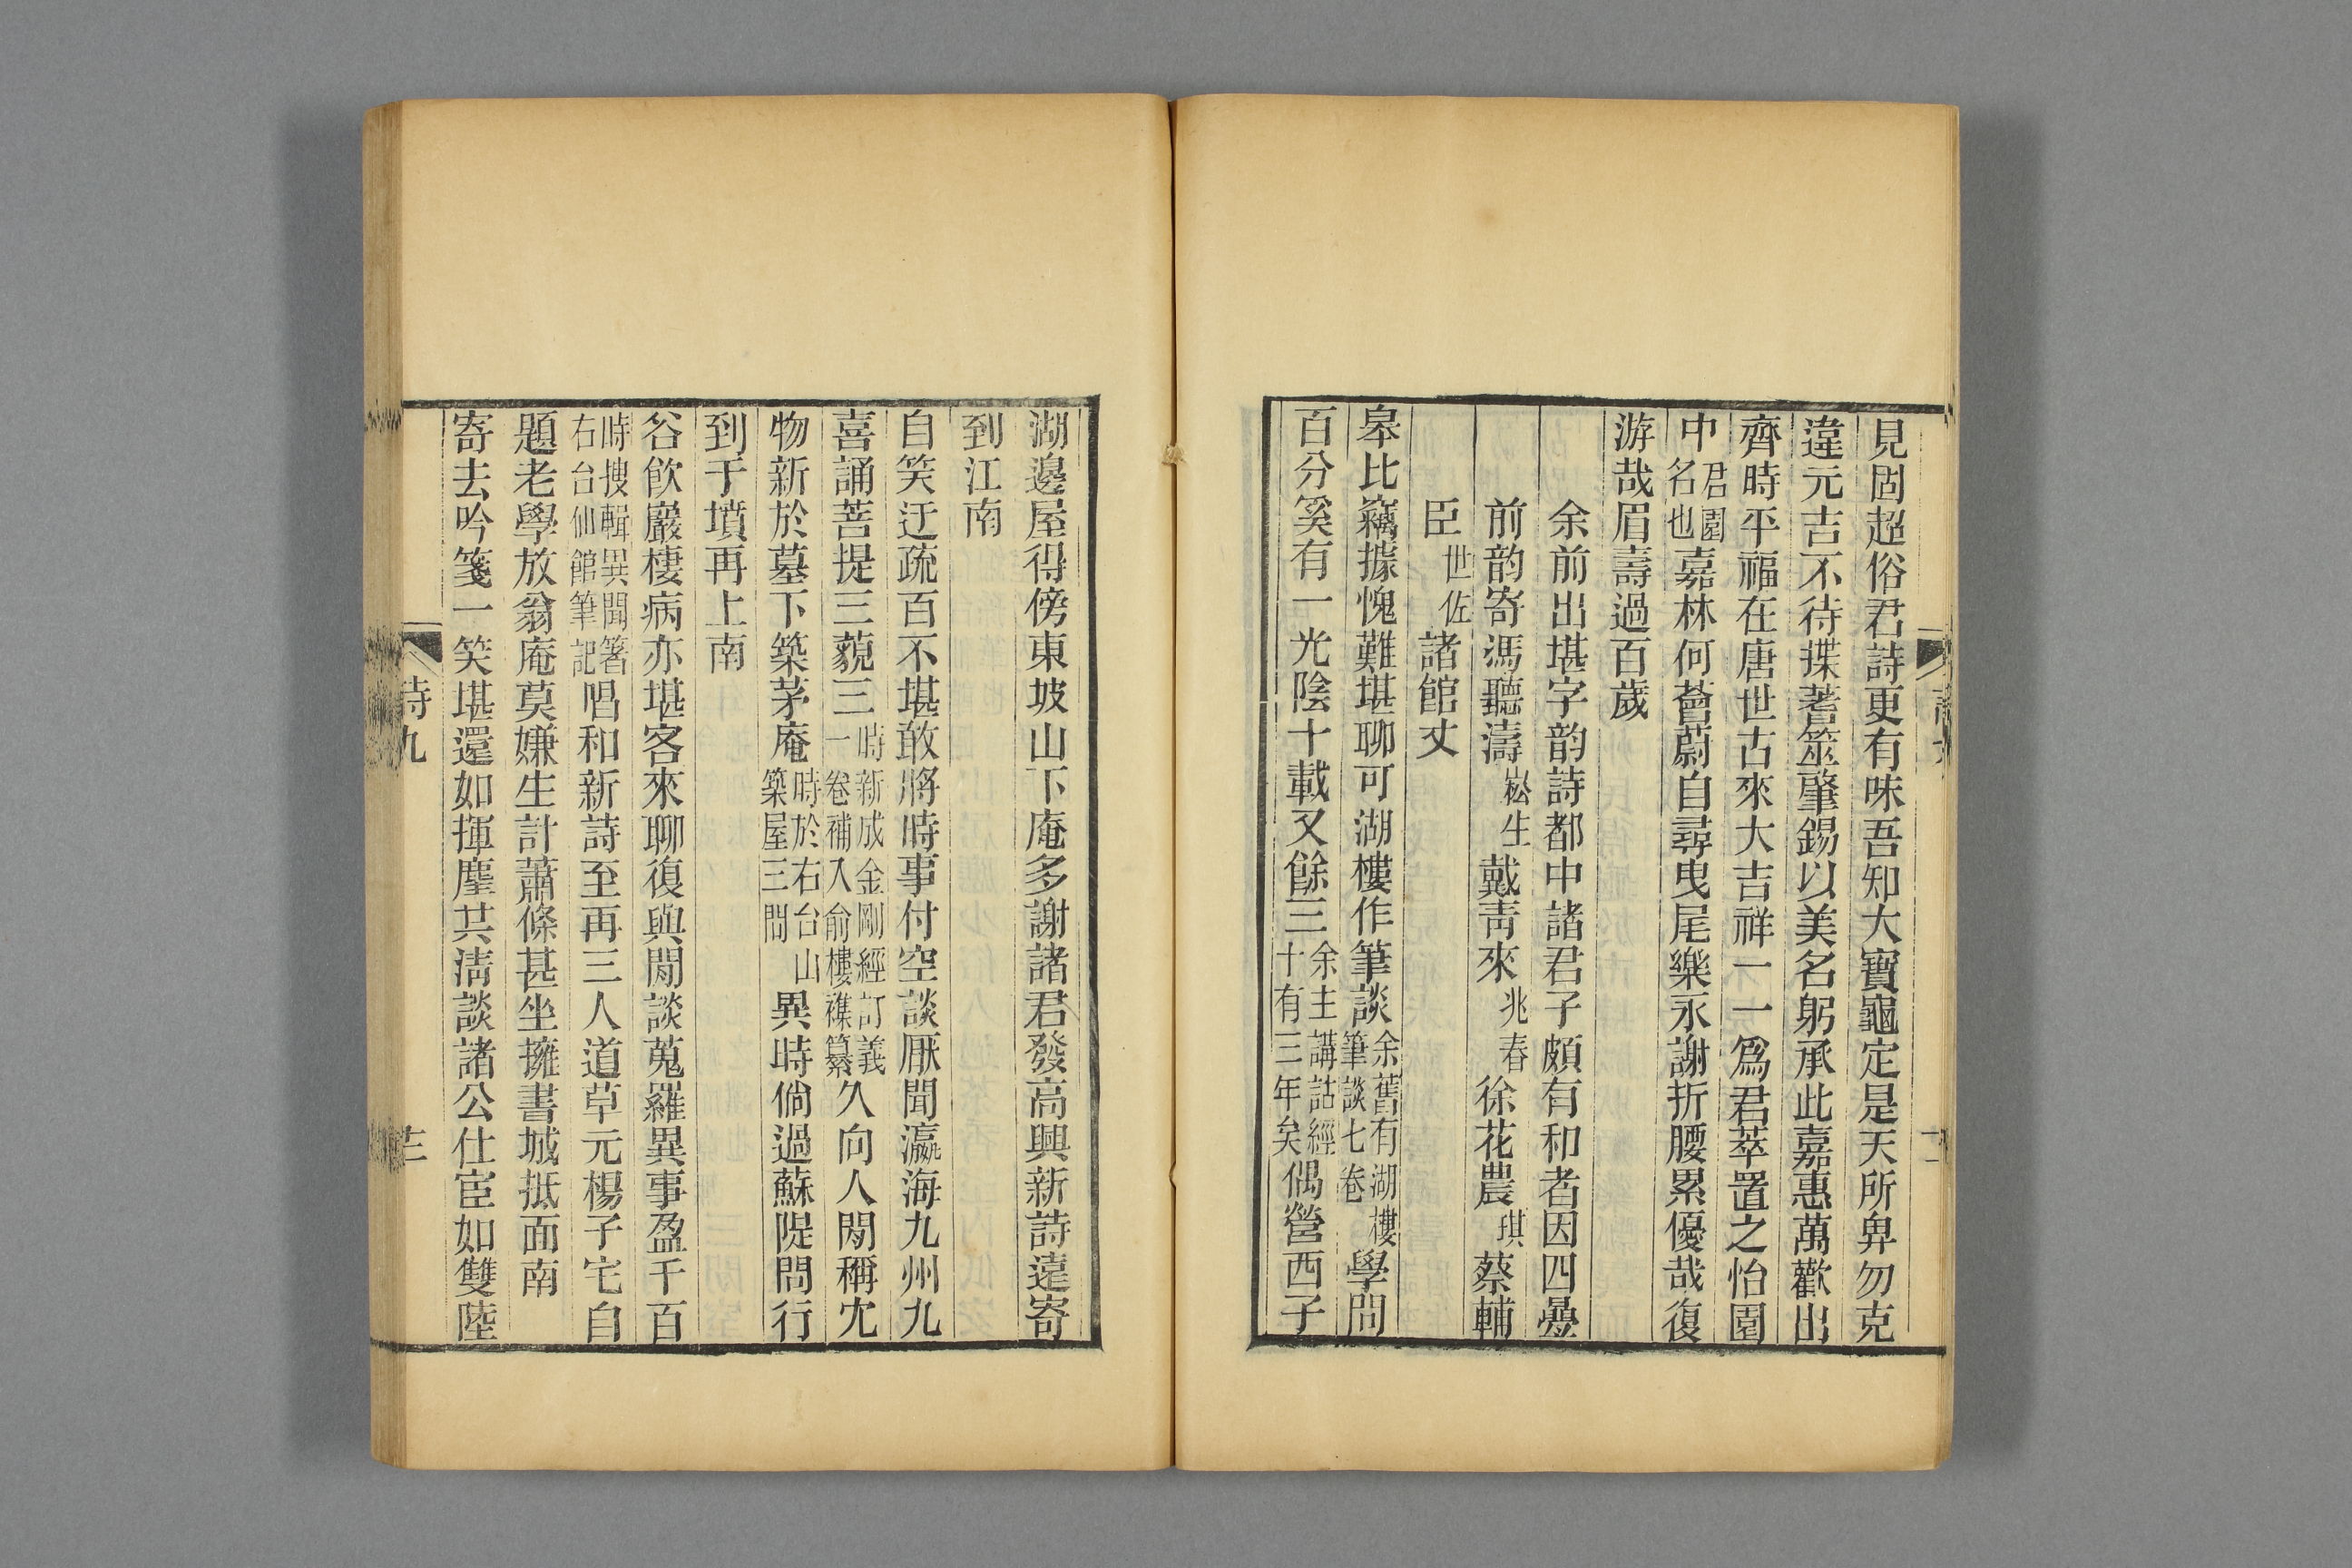 見固超俗君詩更有味吾知大寶龜定是天所畁勿克
違元吉不待揲蓍筮肇錫以美名躬承此嘉惠萬歡出
齊時平福在唐世古來大吉祥一一爲君萃置之怡園
中君園名也嘉林何薈蔚自尋曳尾樂永謝折腰累優哉復
游哉眉壽過百歲
余前出堪字韵詩都中諸君子頗有和者因四疊
前韵寄馮聽濤崧生戴靑來兆春徐花農琪蔡輔
臣世佐諸館丈
皋比竊據愧難堪聊可湖樓作筆談余舊有湖樓筆談七卷學問
百分奚有一光陰十載又餘三余主講詁經十有三年矣偶營西子
湖邊屋得傍東坡山下庵多謝諸君發高興新詩遠寄
到江南
自笑迂疏百不堪敢將時事付空談厭聞瀛海九州九
喜誦菩提三藐三時新成金剛經訂義一卷補入俞樓襍纂久向人閒稱冗
物新於墓下築茅庵時於右台山築屋三間異時倘過蘇隄問行
到于墳再上南
谷飮巖棲病亦堪客來聊復與閒談蒐羅異事盈千百
時搜輯異聞箸右台仙館筆記唱和新詩至再三人道草元楊子宅自
題老學放翁庵莫嫌生計蕭條甚坐擁書城抵面南
寄去吟箋一笑堪還如揮麈共淸談諸公仕宦如雙陸
詩九